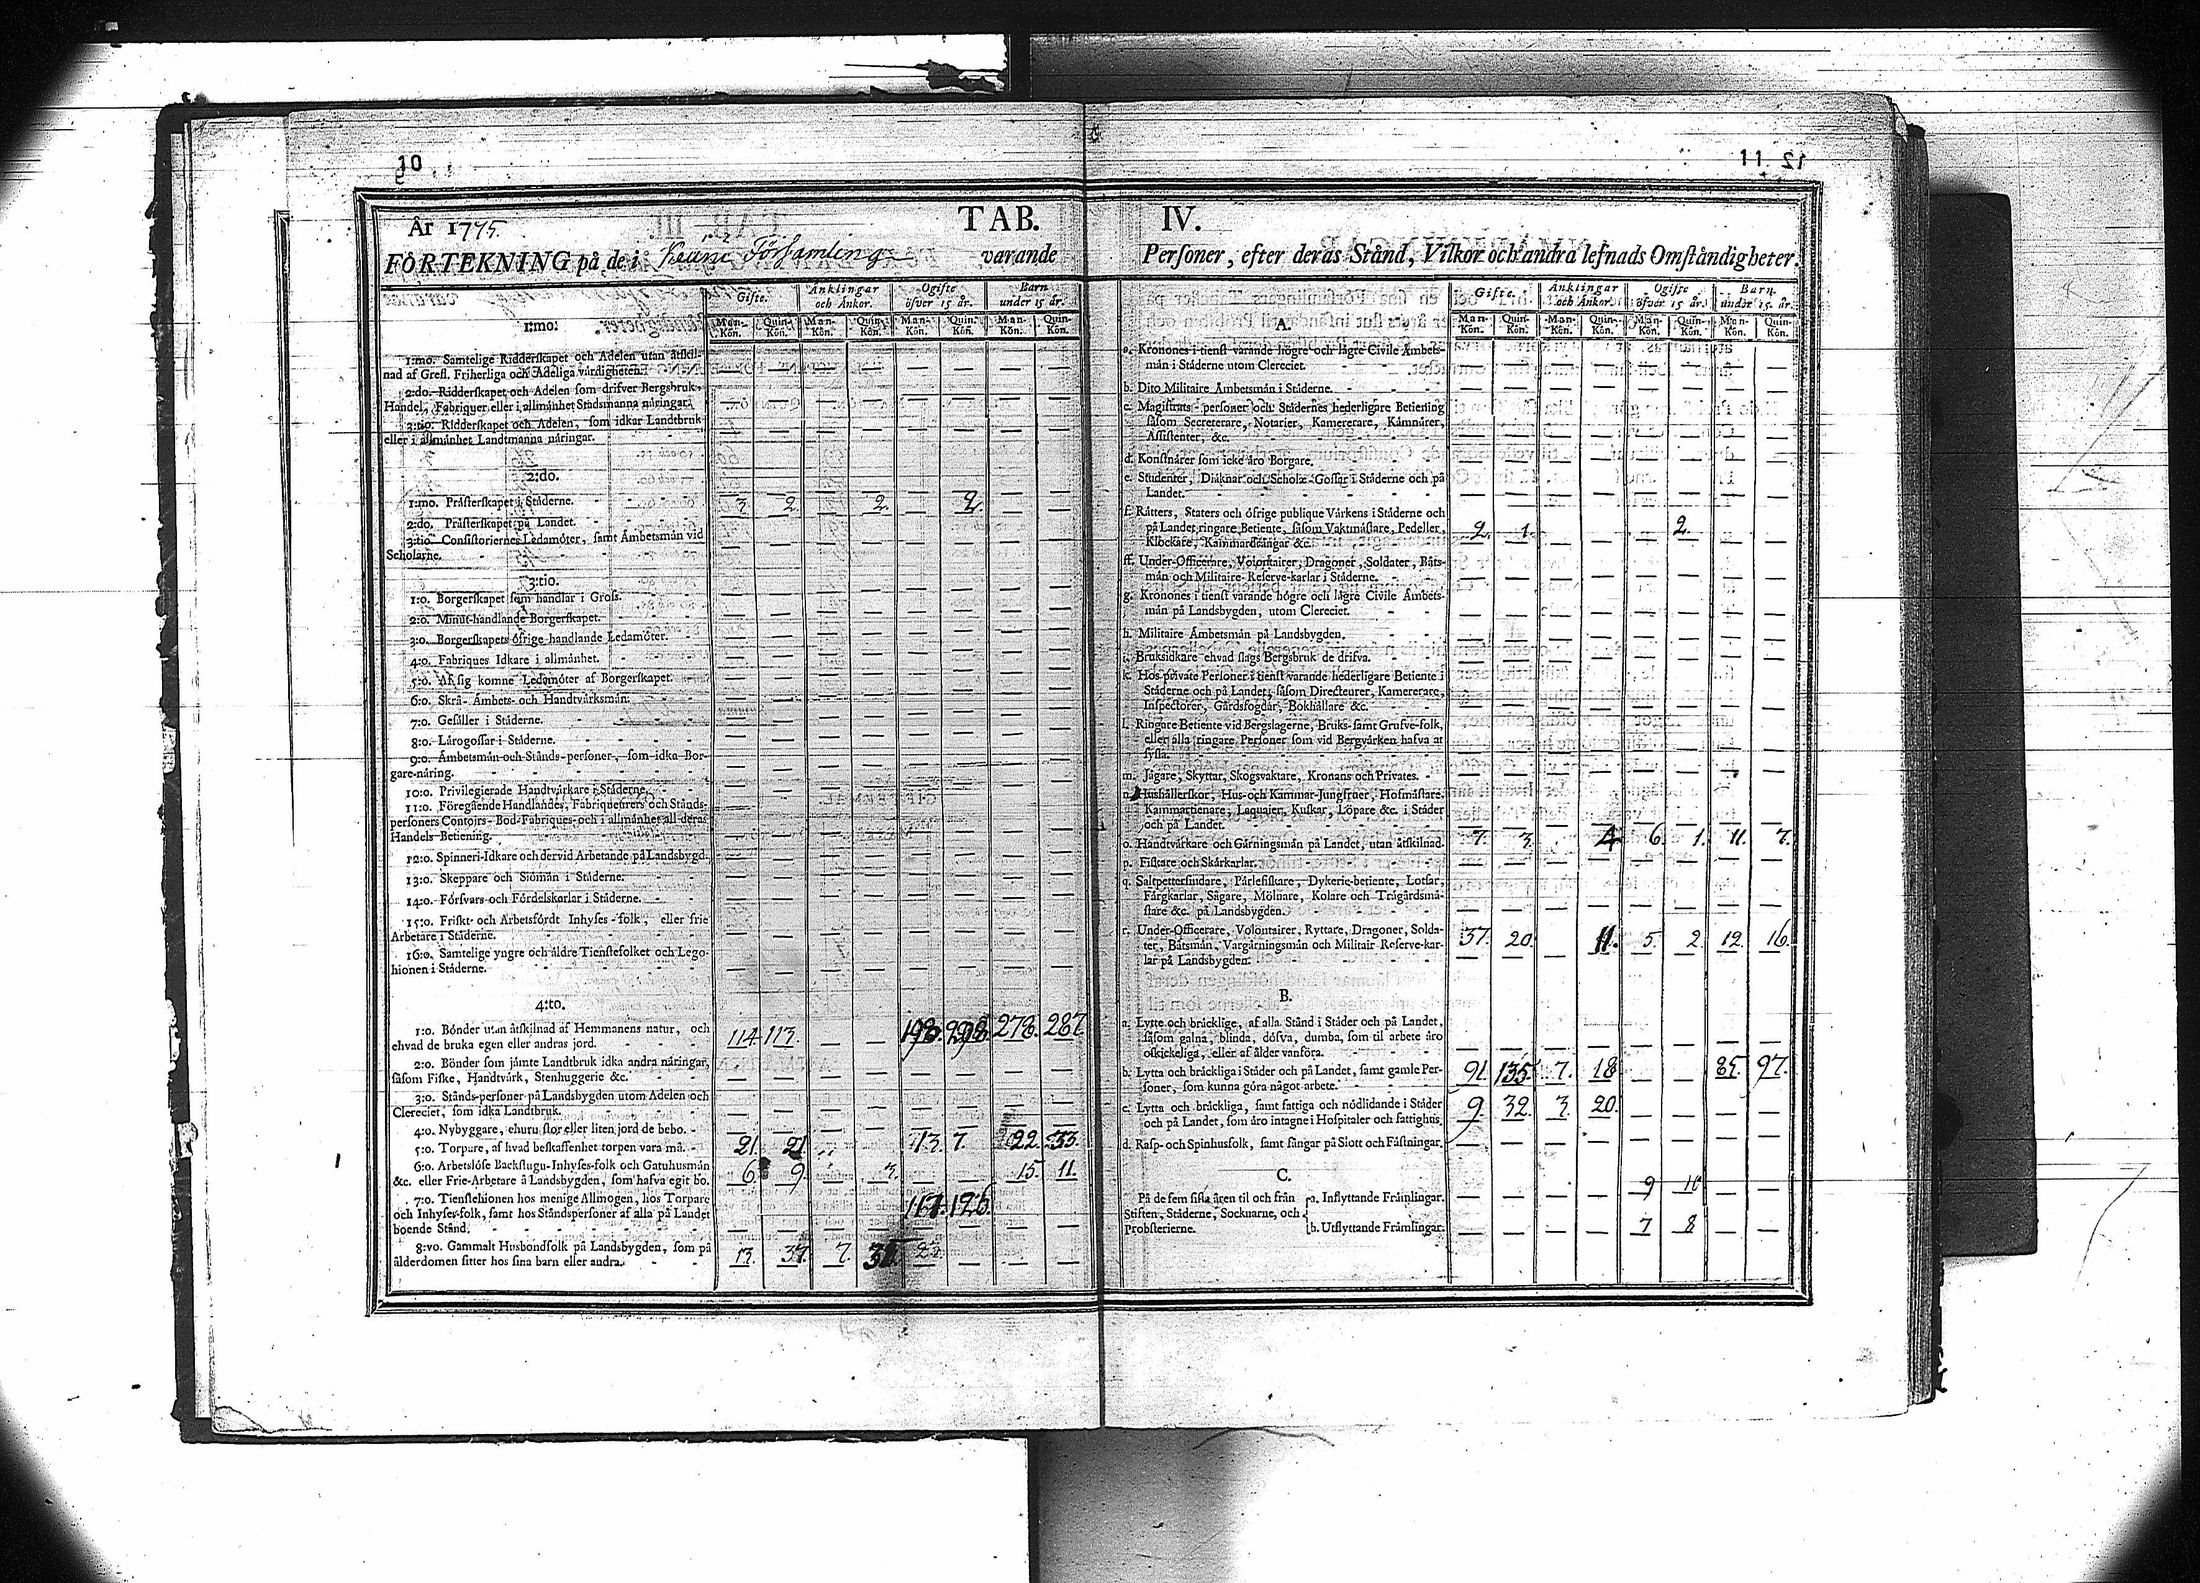 10
11
12
År 1775.
TAB.
IV.
FÖRTEKNING på de i Församling varande
Personer, efter deras Stånd, Vilkor och andra lefnads Omståndigheter.
Gifte.
Änklingar och Änkor.
Ogifte öfver 15 år.
Barn under 15 år.
Man-Kön. Quin-Kön. Man-Kön. Quin-Kön. Man-Kön. Quin-Kön. Man-Kön. Quin-Kön.
1:mo.
1:mo. Samtelige Ridderskapet och Adelen utan åtskil-
nad af Grefl. Friherliga och Adeliga värdigheten.
2:do. Ridderskapet och Adelen som drifver Bergsbruk,
Handel, Fabriquer eller i allmänhet Stadsmanna näringar.
3:tio. Ridderskapet och Adelen, som idkar Landtbruk
eller i allmänhet Landtmanna näringar.
2:do.
1:mo. Prästerskapet i Städerne. 3. 2. 2. 2.
2:do. Prästerskapet på Landet.
3:tio. Consistoriernes Ledamöter, samt Ämbetsmän vid
Scholarne.
3:tio.
1:o. Borgerskapet som handlar i Gross.
2:o. Minut-handlande Borgerskapet.
3:o. Borgerskapets öfrige handlande Ledamöter.
4:o. Fabriques Idkare i allmänhet.
5:o. Af sig komne Ledamöter af Borgerskapet.
6:o. Skrå-Ämbets- och Handtvärksmän.
7:o. Gesäller i Städerne.
8:o. Lärogossar i Städerne.
9:o. Ämbetsmän och Stånds-personer, som idka Bor-
gare-näring.
10:o. Privilegierade Handtvärkare i Städerne.
11:o. Föregående Handlandes, Fabriqueurers och Stånds-
personers Contoirs- Bod- Fabriques- och i allmänhet all deras
Handels-Betiening.
12:o. Spinneri-Idkare och dervid Arbetande på Landsbygd.
13:o. Skeppare och Siömän i Städerne.
14:o. Försvars- och Fördelskarlar i Städerne.
15:o. Friskt- och Arbetsfördt Inhyses-folk, eller frie
Arbetare i Städerne.
16:o. Samtelige yngre och äldre Tienstefolket och Lego-
hionen i Städerne.
4:to.
1:o. Bönder utan åtskilnad af Hemmanens natur, och
ehvad de bruka egen eller andras jord. 114 113. 198. 298. 278. 287.
2:o. Bönder som jämte Landtbruk idka andra näringar,
såsom Fiske, Handtvärk, Stenhuggerie &c.
3:o. Stånds-personer på Landsbygden utom Adelen och
Clereciet, som idka Landtbruk.
4:o. Nybyggare, ehuru stor eller liten jord de bebo.
5:o. Torpare, af hvad beskaffenhet torpen vara må. 21. 21 13. 7. 22. 33.
6:o. Arbetslöse Backstugu-Inhyses-folk och Gatuhusmän
&c. eller Frie-Arbetare å Landsbygden, som hafva eget bo. 6. 9. 3. 15. 11.
7:o. Tienstehionen hos menige Allmogen, hos Torpare
och Inhyses-folk, samt hos Ståndspersoner af alla på Landet
boende Stånd. 126.
8:vo. Gammalt Husbondfolk på Landsbygden, som på
ålderdomen sitter hos sina barn eller andra. 13. 37. 7.
Gifte.
Änklingar och Änkor.
Ogifte öfver 15 år.
Barn under 15. år.
Man-Kön. Quin-Kön. Man-Kön. Quin-Kön. Man-Kön. Quin-Kön. Man-Kön. Quin-Kön.
A.
a. Kronones i tienst varande högre och lägre Civile Ämbets-
män i Städerne utom Clereciet.
b. Dito Militaire Ämbetsmän i Städerne.
c. Magistrats-personer och Städernes hederligare Betiening
såsom Secreterare, Notarier, Kamererare, Kämnärer,
Assistenter, &c.
d. Konstnärer som icke äro Borgare.
e. Studenter, Diäknar och Scholæ-Gossar i Städerne och på
Landet.
f. Rätters, Staters och öfrige publique Värkens i Städerne och
på Landet ringare Betiente, såsom Vaktmästare, Pedeller, 2. 1. 2.
Klockare, Kammardrängar &c.
ff. Under-Officerare, Volontairer, Dragoner, Soldater, Båts-
män och Militaire-Reserve-karlar i Städerne.
g. Kronones i tienst varande högre och lägre Civile Ämbets-
män på Landsbygden, utom Clereciet.
h. Militaire Ämbetsmän på Landsbygden.
i. Bruksidkare ehvad slags Bergsbruk de drifva.
k. Hos private Personer i tienst varande hederligare Betiente i
Städerne och på Landet, såsom Directeurer, Kamererare,
Inspectorer, Gårdsfogdar, Bokhållare &c.
l. Ringare Betiente vid Bergslagerne, Bruks- samt Grufve-folk,
eller alla ringare Personer som vid Bergvärken hafva at
syssla.
m. Jägare, Skyttar, Skogsvaktare, Kronans och Privates.
n. Hushållerskor, Hus- och Kammar-Jungfruer, Hofmästare,
Kammartienare, Laquaier, Kuskar, Löpare &c. i Städer
och på Landet.
o. Handtvärkare och Gärningsmän på Landet, utan åtskilnad. 7. 3. 4. 6. 1. 11. 7.
p. Fiskare och Skärkarlar.
q. Saltpettersiudare, Pärlefiskare, Dykerie-betiente, Lotsar,
Färgkarlar, Sågare, Mölnare, Kolare och Trägårdsmä-
stare &c. på Landsbygden.
r. Under-Officerare, Volontairer, Ryttare, Dragoner, Solda-
ter, Båtsmän, Vargärningsmän och Militair Reserve-kar- 37. 20. 11. 5. 2. 12. 16.
lar på Landsbygden.
B.
a. Lytte och bräcklige, af alla Stånd i Städer och på Landet,
såsom galna, blinda, döfva, dumba, som til arbete äro
oskickeliga, eller af ålder vanföra.
b. Lytta och bräckliga i Städer och på Landet, samt gamle Per- 91. 135. 7. 18. 85. 97.
soner, som kunna göra något arbete.
c. Lytta och bräckliga, samt fattiga och nödlidande i Städer 9. 32. 3. 20.
och på Landet, som äro intagne i Hospitaler och fattighus.
d. Rasp- och Spinhusfolk, samt fångar på Slott och Fästningar.
C.
På de fem sista åren til och från
Stiften, Städerne, Socknarne, och
Probsterierne.
a. Inflyttande Främlingar. 9
b. Utflyttande Främlingar. 7 8